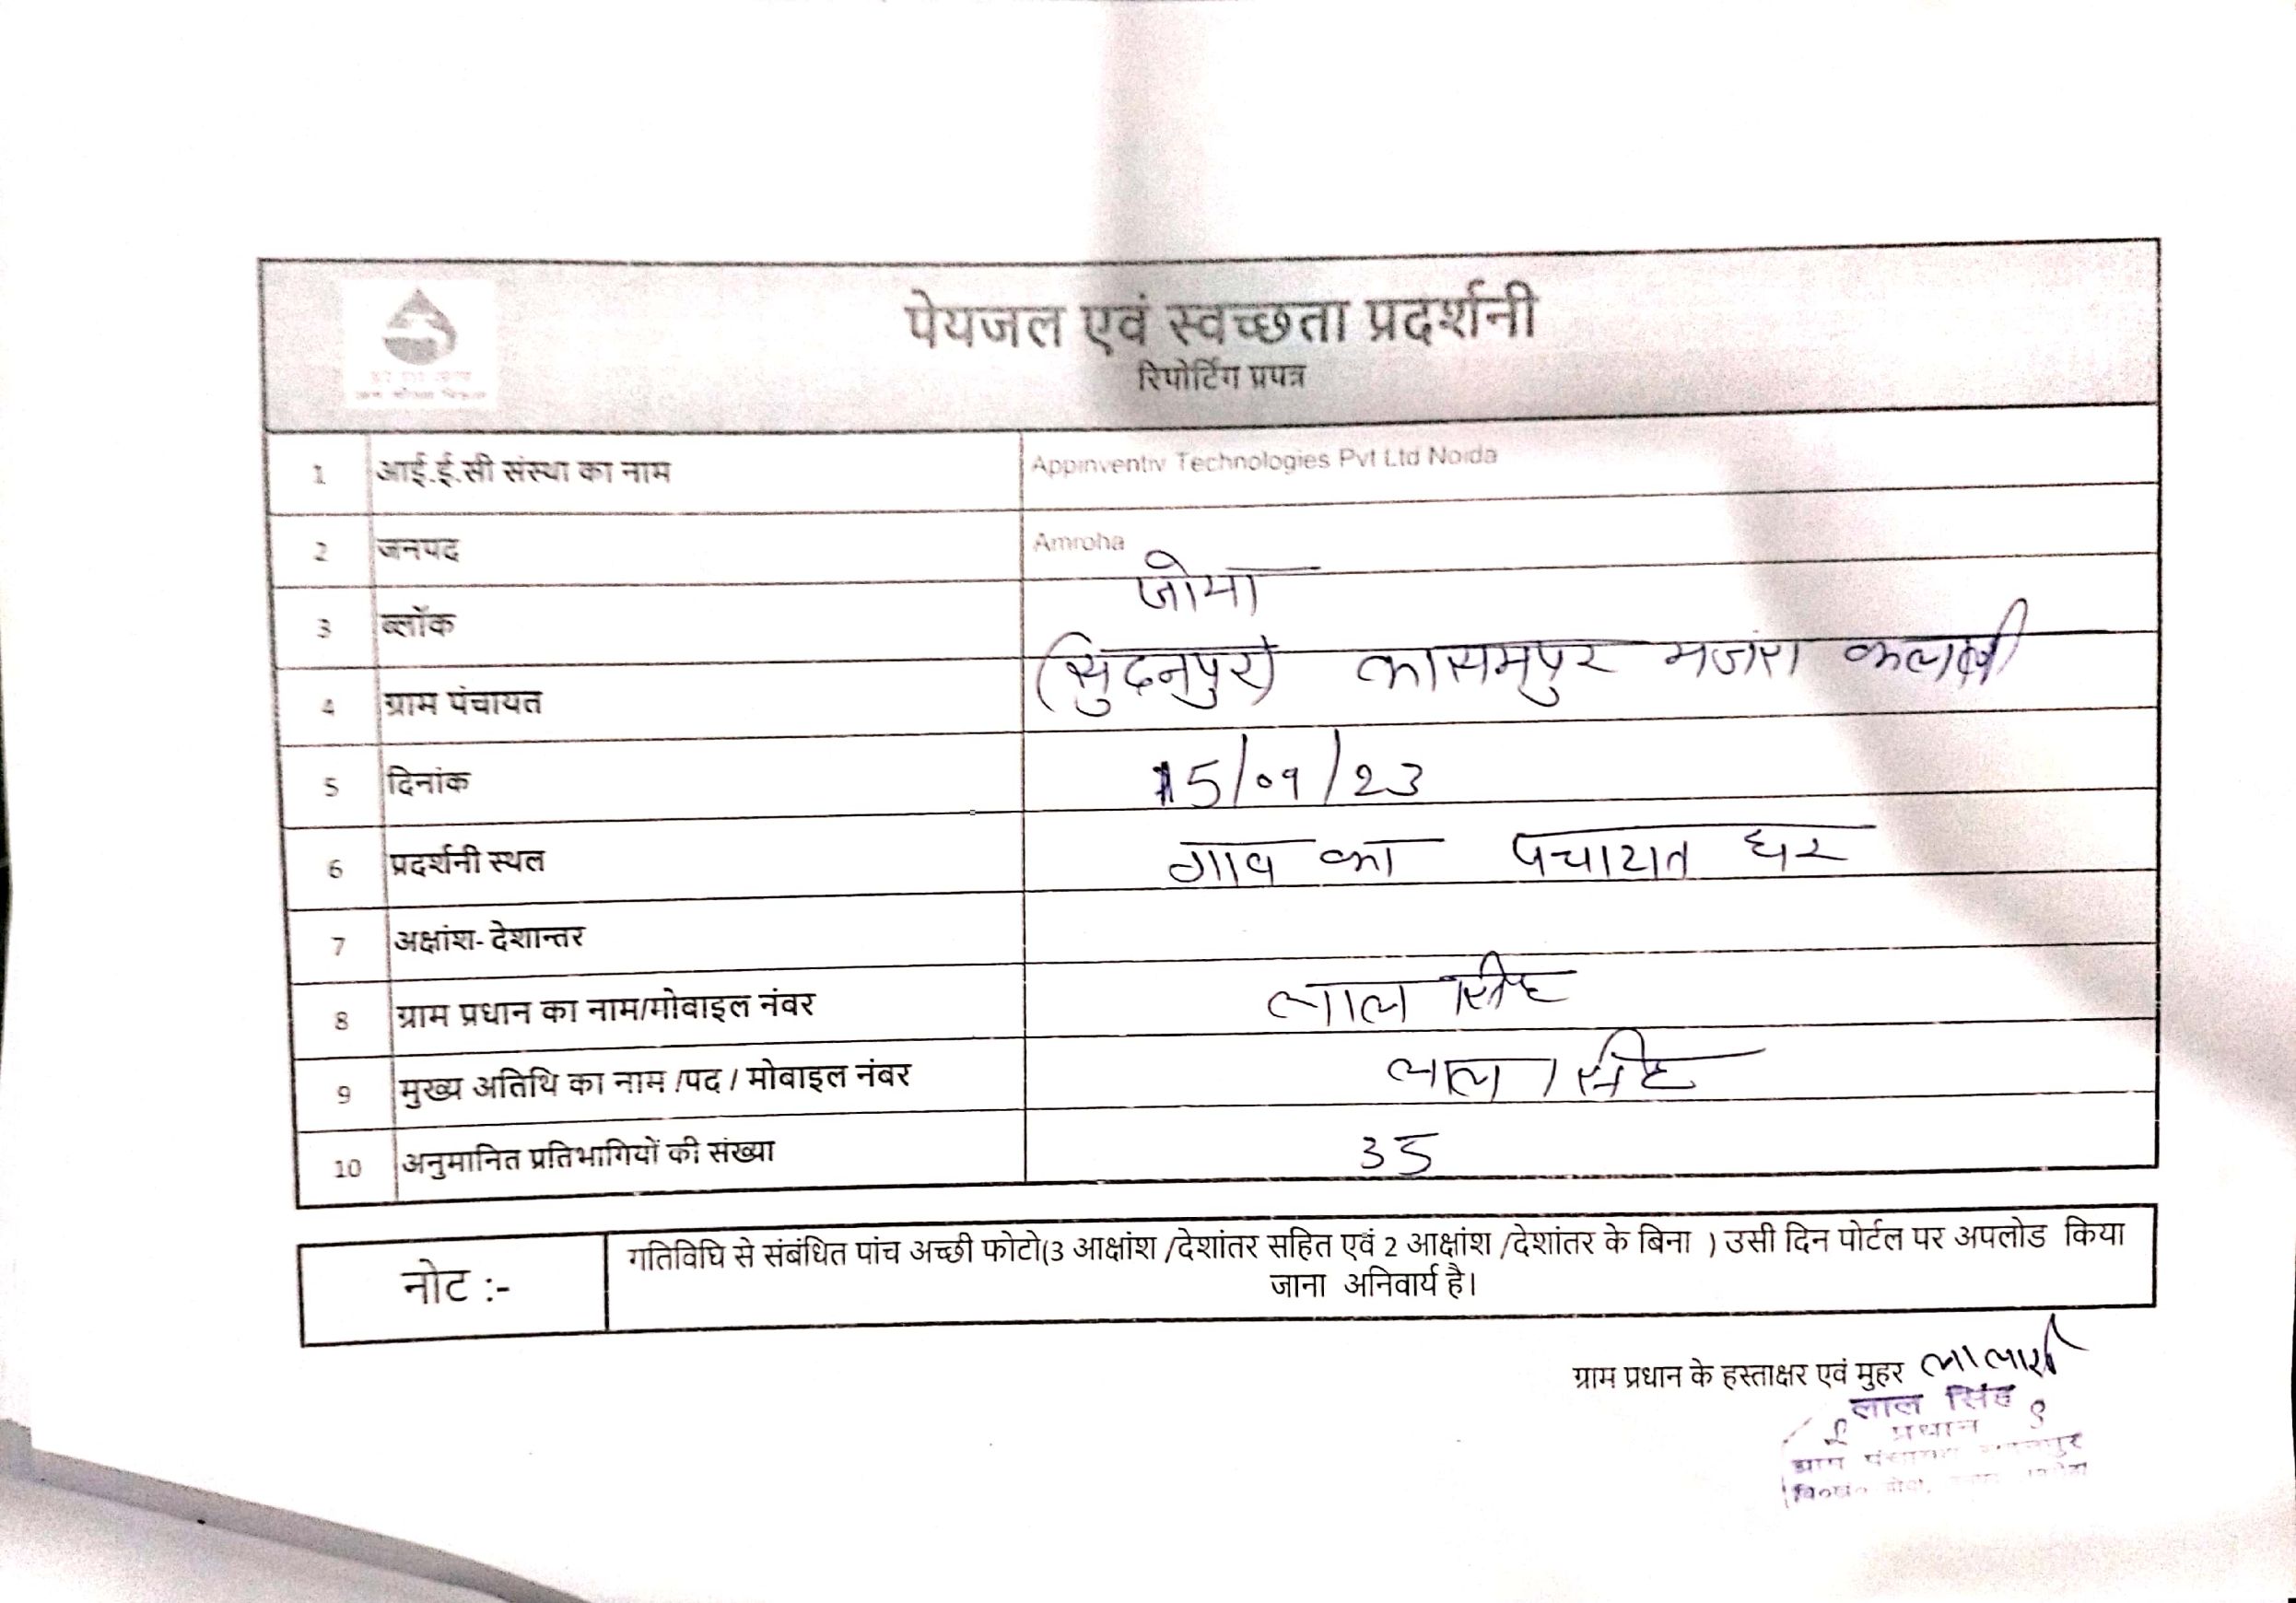 पेयजल एवं स्वच्छता प्रदर्शनी
रिपोर्टिंग प्रपत्र
1 आई.ई.सी संस्था का नाम Appinventiv Technologies Pvt Ltd Noida
2 जनपद Amroha
3 ब्लॉक जोया
4 ग्राम पंचायत कासमपुर मजरा
5 दिनांक 15/09/23
6 प्रदर्शनी स्थल गाव का पचायत घर
7 अक्षांश- देशान्तर
8 ग्राम प्रधान का नाम/मोबाइल नंबर लाल सिंह
9 मुख्य अतिथि का नाम /पद / मोबाइल नंबर लाल सिंह
10 अनुमानित प्रतिभागियों की संख्या 35
नोट :- गतिविधि से संबंधित पांच अच्छी फोटो(3 आक्षांश /देशांतर सहित एवं 2 आक्षांश /देशांतर के बिना ) उसी दिन पोर्टल पर अपलोड किया
जाना अनिवार्य है।
ग्राम प्रधान के हस्ताक्षर एवं मुहर
लाल सिंह
प्रधान
ग्राम पंचायत
वि०खं०